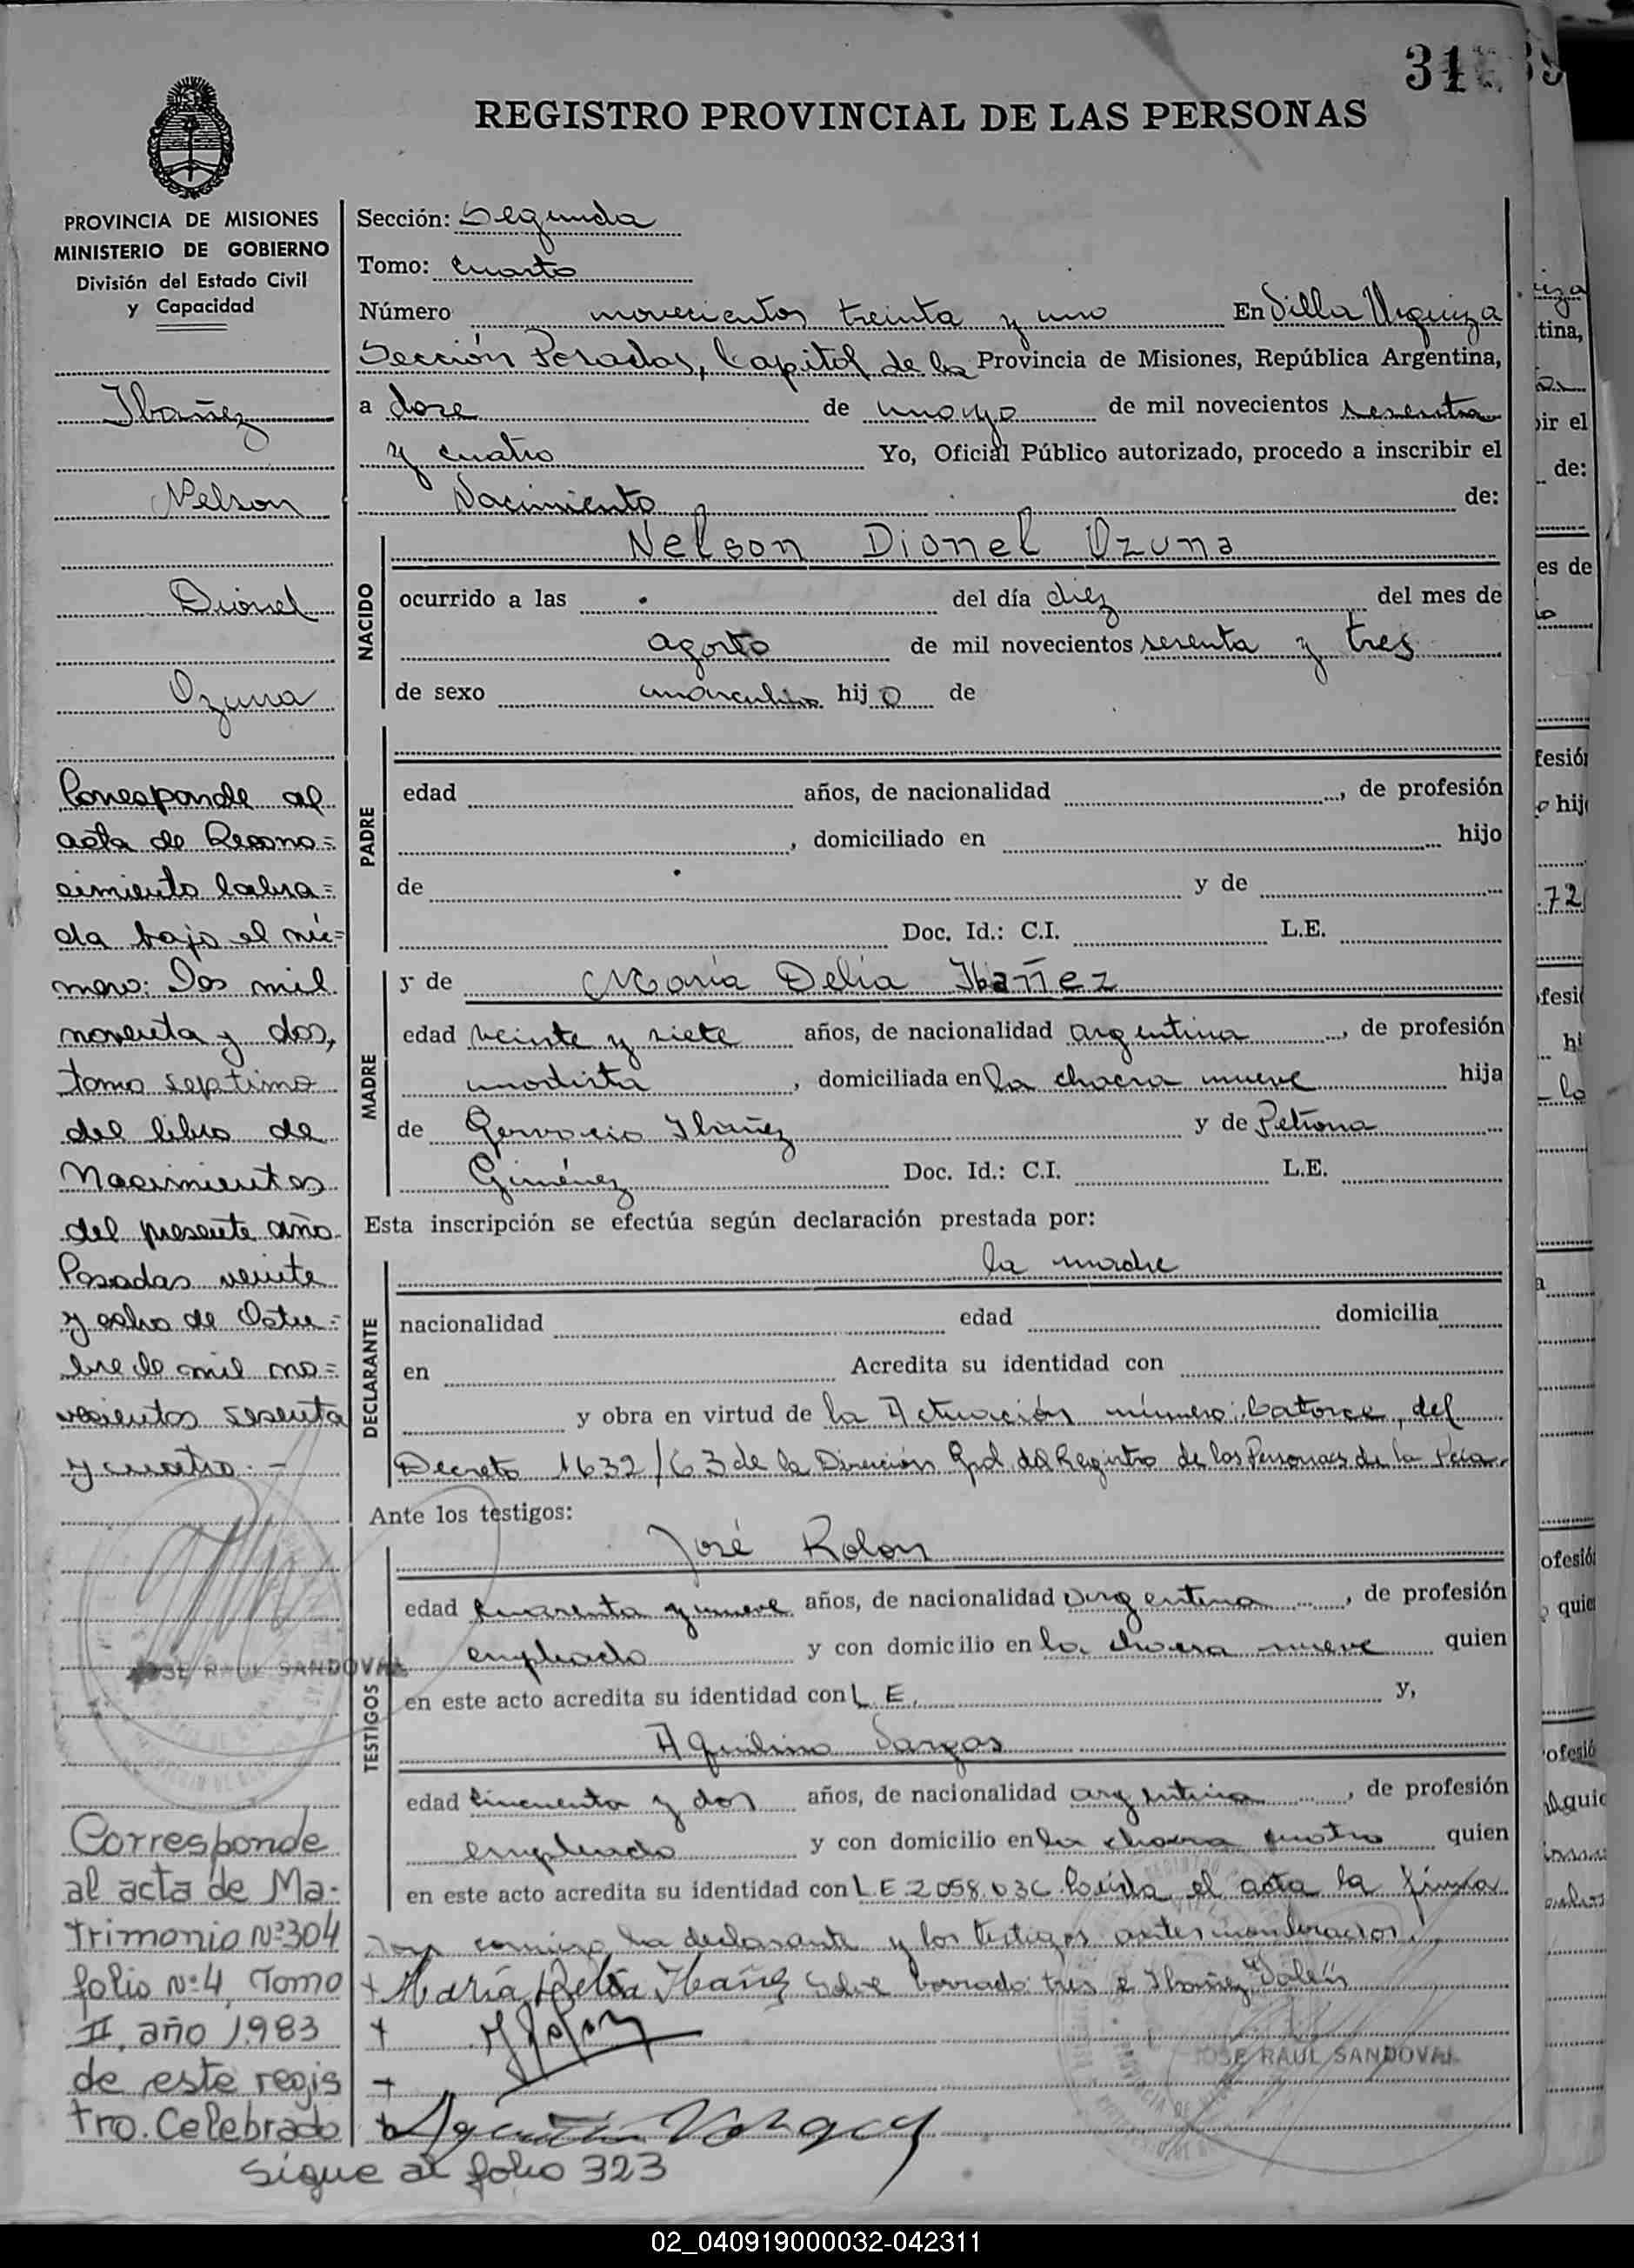 31
REGISTRO PROVINCIAL DE LAS PERSONAS
PROVINCIA DE MISIONES
MINISTERIO DE GOBIERNO
División del Estado Civil
y Capacidad
Ibañez
Nelson
Dionel
Ozuna
Corresponde al
acta de Recono=
cimiento labra=
da bajo el nú=
mero: Dos mil
noventa y dos,
tomo septimo
del libro de
Nacimientos
del presente año.
Posadas veinte
y ocho de Octu=
bre de mil no=
vecientos sesenta
y cuatro.-
JOSE RAUL SANDOVAL
Corresponde
al acta de Ma-
trimonio Nº 304
folio Nº 4, Tomo
II, año 1983
de este regis
tro. Celebrado
Sigue al folio 323
Sección: Segunda
Tomo: Cuarto
Número novecientos treinta y uno En Villa Urquiza
Sección Posadas, Capital de la Provincia de Misiones, República Argentina,
a doce de mayo de mil novecientos sesenta
y cuatro Yo, Oficial Público autorizado, procedo a inscribir el
Nacimiento de:
NACIDO
Nelson Dionel Ozuna
ocurrido a las del día diez del mes de
agosto de mil novecientos sesenta y tres
de sexo masculino hijo de
PADRE
edad años, de nacionalidad , de profesión
, domiciliado en hijo
de y de
Doc. Id.: C.I. L.E.
MADRE
y de María Delia Ibañez
edad veinte y siete años, de nacionalidad argentina , de profesión
modista , domiciliada en la chacra nueve hija
de Gervacio Ibañez y de Petrona
Giménez Doc. Id.: C.I. L.E.
Esta inscripción se efectúa según declaración prestada por:
DECLARANTE
la madre
nacionalidad edad domicilia
en Acredita su identidad con
y obra en virtud de la Actuación número: Catorce, del
Decreto 1632/63 de la Dirección Gral. del Registro de las Personas de la Pcia.
Ante los testigos:
TESTIGOS
José Rolon
edad cuarenta y nueve años, de nacionalidad argentina , de profesión
empleado y con domicilio en la chacra nueve quien
en este acto acredita su identidad con L.E. y,
Aquilino Vargas
edad cincuenta y dos años, de nacionalidad argentina , de profesión
empleado y con domicilio en la chacra cuatro quien
en este acto acredita su identidad con L.E. 2058.036 Leída el acta la firma
conmigo la declarante y los testigos antes nombrados.
María Delia Ibañez Sobre borrado: tres e Ibañez Valen
JOSE RAUL SANDOVAL
02_040919000032-042311